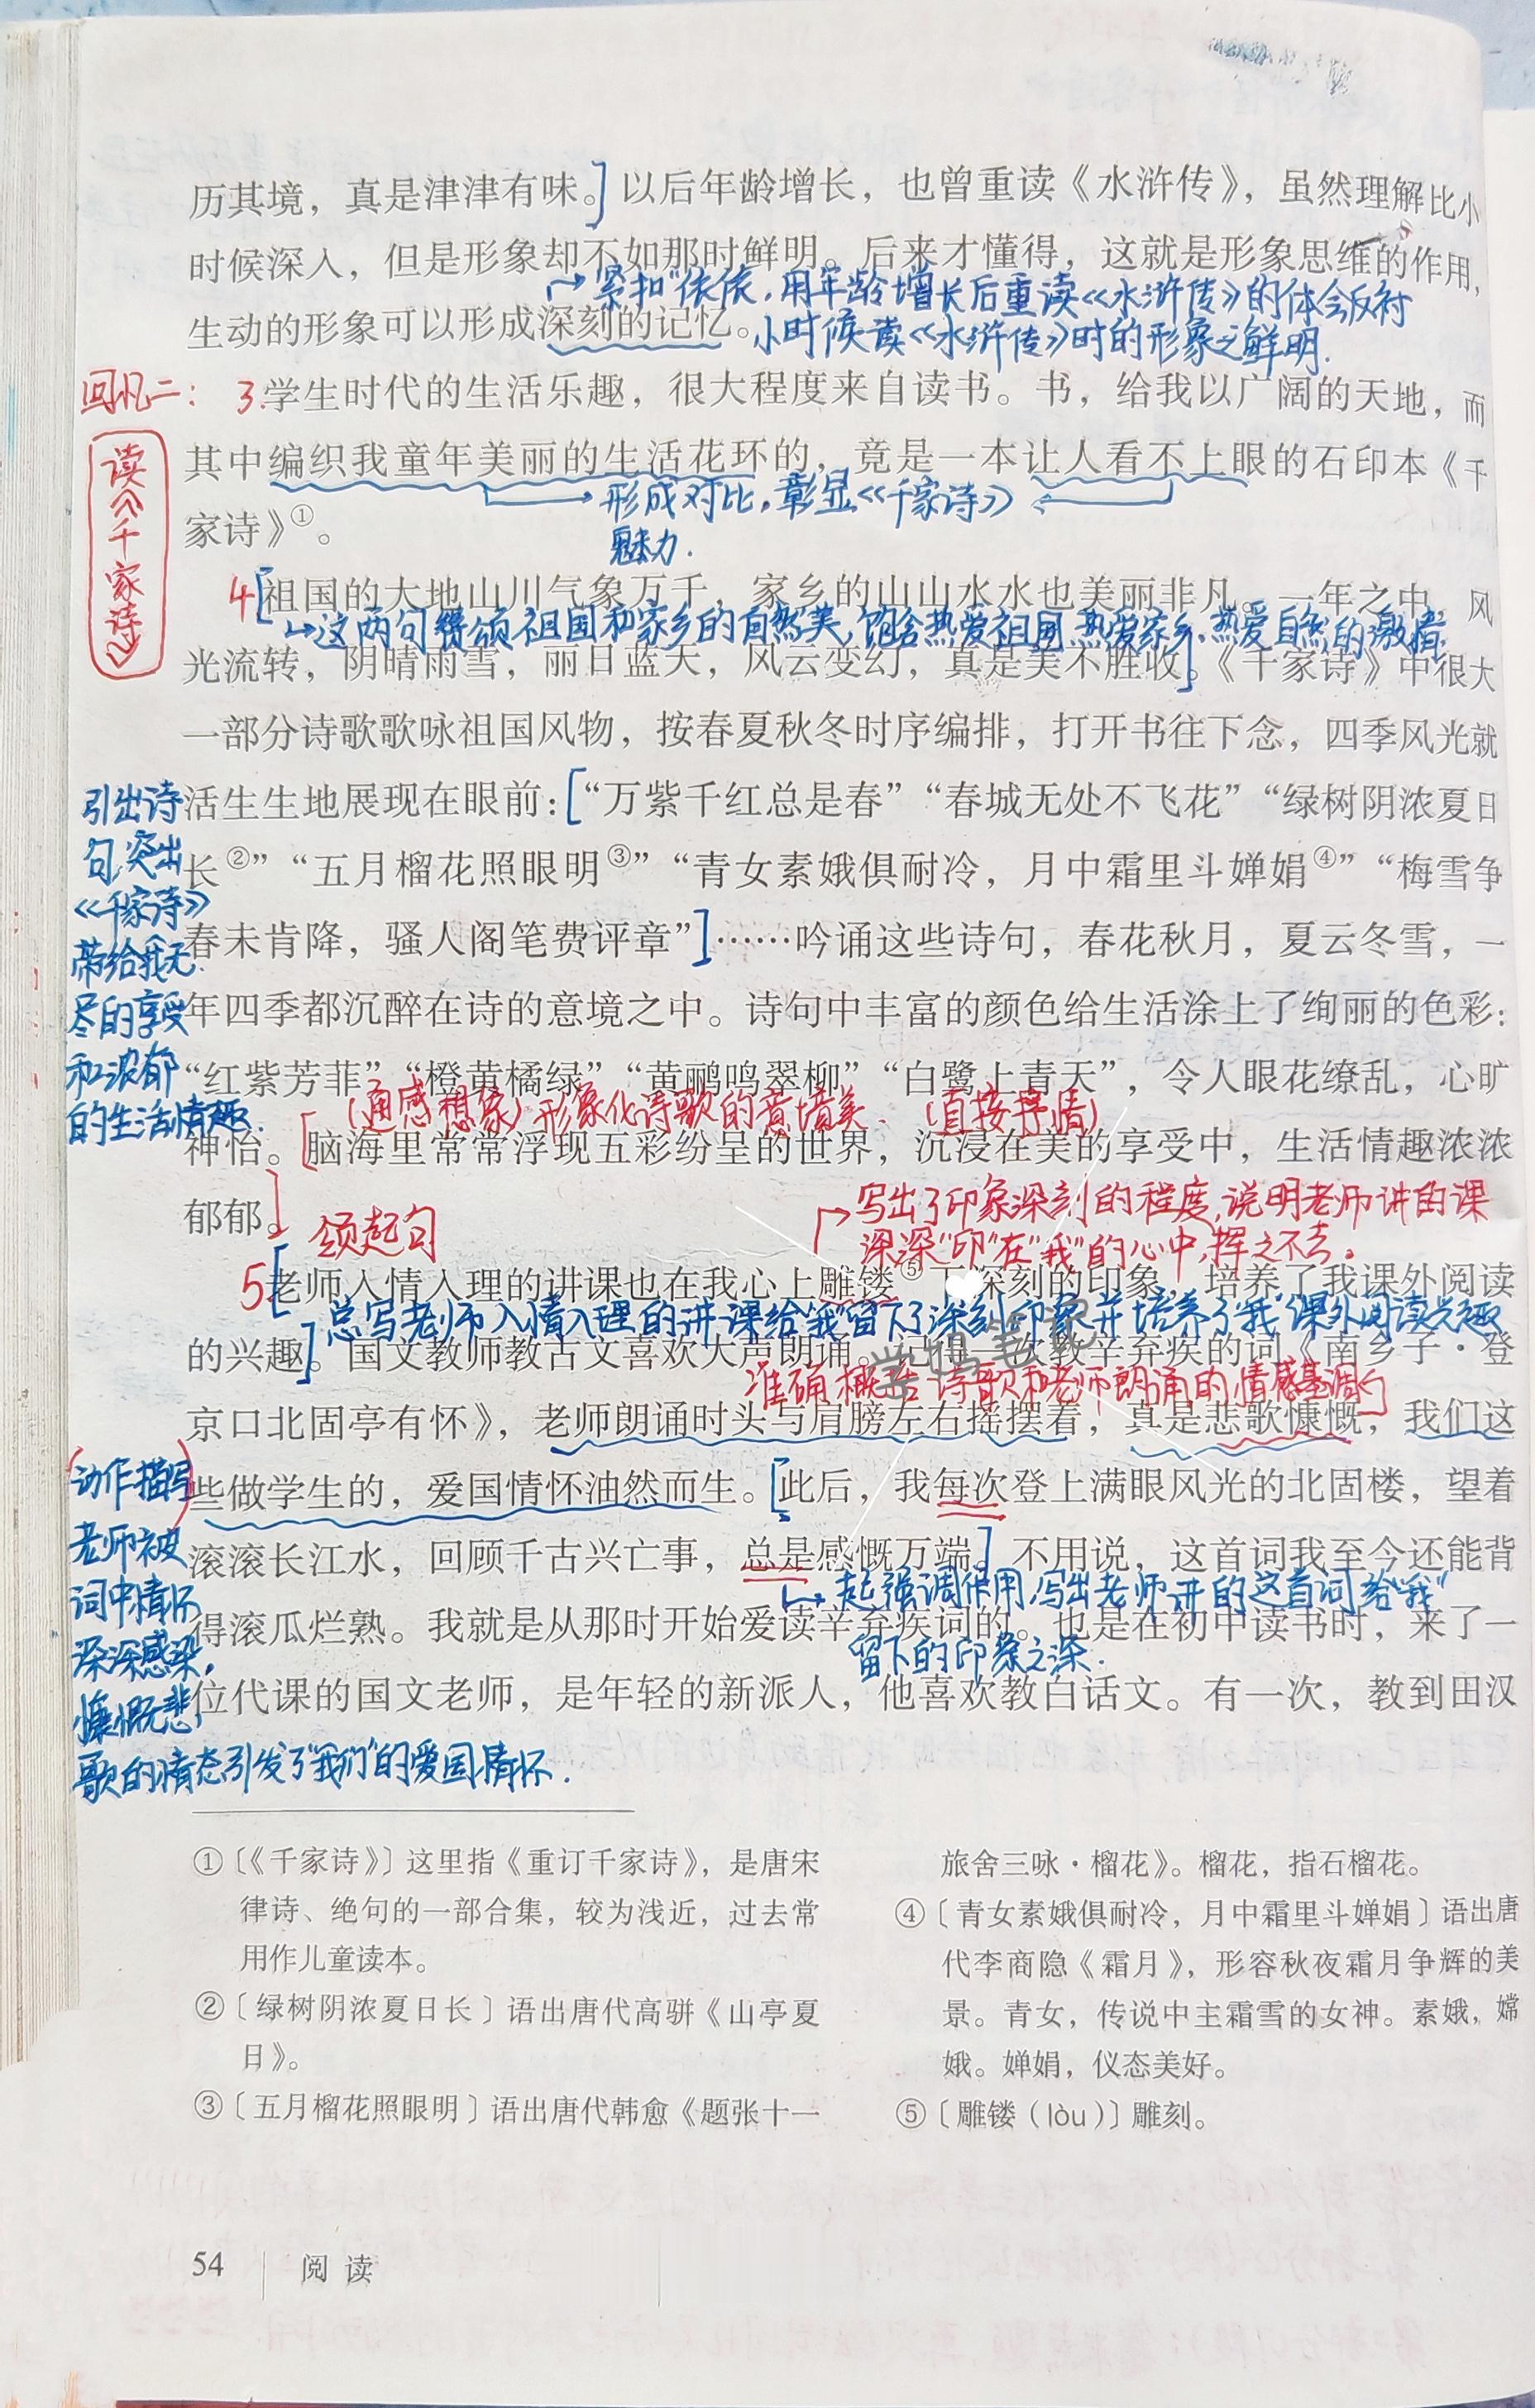 历其境，真是津津有味。]以后年龄增长，也曾重读《水浒传》，虽然理解比小
时候深入，但是形象却不如那时鲜明。后来才懂得，这就是形象思维的作用，
→紧扣“依依，用年龄增长后重读《水浒传》的体会反衬
生动的形象可以形成深刻的记忆。
小时候读《水浒传》时的形象之鲜明.
回忆二：
3.学生时代的生活乐趣，很大程度来自读书。书，给我以广阔的天地，而
读《千家诗》
其中编织我童年美丽的生活花环的，竟是一本让人看不上眼的石印本《千
→形成对比，彰显《千家诗》←
家诗》①。
魅力.
4[祖国的大地山川气象万千，家乡的山山水水也美丽非凡。一年之中，风
→这两句赞颂祖国和家乡的自然美，饱含热爱祖国、热爱家乡、热爱自然的激情.
光流转，阴晴雨雪，丽日蓝天，风云变幻，真是美不胜收]。《千家诗》中很大
一部分诗歌歌咏祖国风物，按春夏秋冬时序编排，打开书往下念，四季风光就
活生生地展现在眼前：[“万紫千红总是春”“春城无处不飞花”“绿树阴浓夏日
长②”“五月榴花照眼明③”“青女素娥俱耐冷，月中霜里斗婵娟④”“梅雪争
春未肯降，骚人阁笔费评章”]……吟诵这些诗句，春花秋月，夏云冬雪，一
年四季都沉醉在诗的意境之中。诗句中丰富的颜色给生活涂上了绚丽的色彩：
“红紫芳菲”“橙黄橘绿”“黄鹂鸣翠柳”“白鹭上青天”，令人眼花缭乱，心旷
引出诗
句,突出
《千家诗》
带给我无
尽的享受
和浓郁
的生活情趣.
(通感想象)形象化诗歌的意境美. (直接抒情)
神怡。[脑海里常常浮现五彩纷呈的世界，沉浸在美的享受中，生活情趣浓浓
郁郁。]
领起句
→写出了印象深刻的程度,说明老师讲的课
深深“印”在“我”的心中,挥之不去.
5[老师入情入理的讲课也在我心上雕镂⑤下深刻的印象，培养了我课外阅读
总写老师入情入理的讲课给“我”留下了深刻印象并培养了“我”课外阅读兴趣
的兴趣]。国文教师教古文喜欢大声朗诵。记得一次教辛弃疾的词《南乡子·登
学姐笔记
准确概括诗歌和老师朗诵的情感基调
京口北固亭有怀》，老师朗诵时头与肩膀左右摇摆着，真是悲歌慷慨，我们这
些做学生的，爱国情怀油然而生。[此后，我每次登上满眼风光的北固楼，望着
滚滚长江水，回顾千古兴亡事，总是感慨万端]。不用说，这首词我至今还能背
→起强调作用,写出老师讲的这首词给“我”
得滚瓜烂熟。我就是从那时开始爱读辛弃疾词的。也是在初中读书时，来了一
留下的印象之深.
位代课的国文老师，是年轻的新派人，他喜欢教白话文。有一次，教到田汉
(动作描写)
老师被
词中情怀
深深感染,
慷慨悲
歌的情态引发了“我们”的爱国情怀.
①〔《千家诗》〕这里指《重订千家诗》，是唐宋
律诗、绝句的一部合集，较为浅近，过去常
用作儿童读本。
②〔绿树阴浓夏日长〕语出唐代高骈《山亭夏
日》。
③〔五月榴花照眼明〕语出唐代韩愈《题张十一
旅舍三咏·榴花》。榴花，指石榴花。
④〔青女素娥俱耐冷，月中霜里斗婵娟〕语出唐
代李商隐《霜月》，形容秋夜霜月争辉的美
景。青女，传说中主霜雪的女神。素娥，嫦
娥。婵娟，仪态美好。
⑤〔雕镂（lòu）〕雕刻。
54 阅读